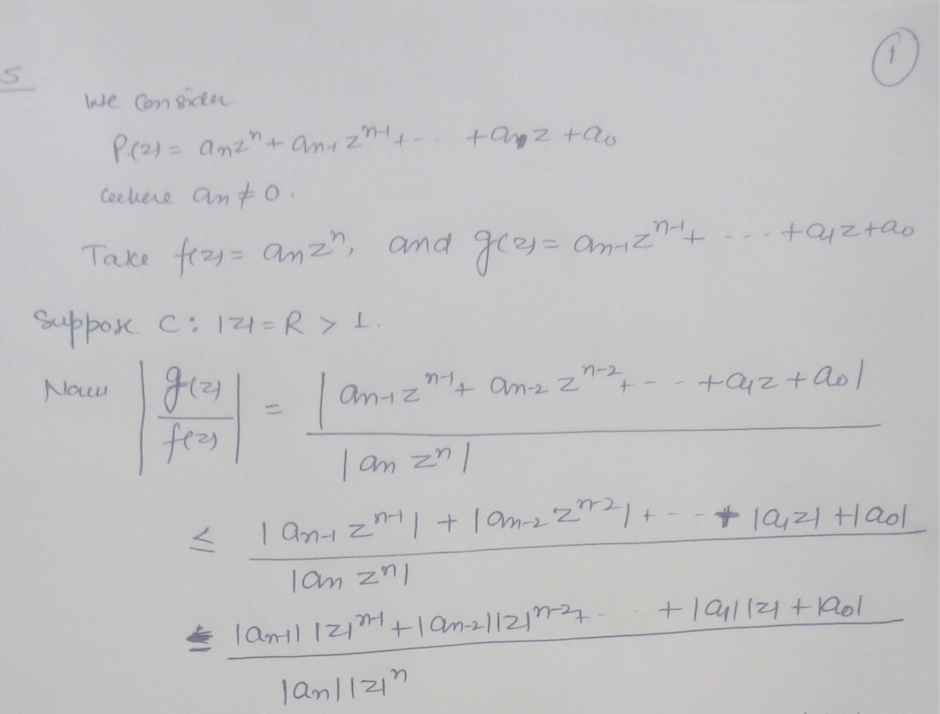 ①
5
We Consider
P(z) = aₙzⁿ + aₙ₋₁ zⁿ⁻¹ + - - + a₁ z + a₀
where aₙ ≠ 0.
Take f(z) = aₙzⁿ, and g(z) = aₙ₋₁zⁿ⁻¹ + - - - + a₁z + a₀
Suppose C: |z| = R > 1.
Now |g(z)/f(z)| = |aₙ₋₁zⁿ⁻¹ + aₙ₋₂ zⁿ⁻² + - - + a₁z + a₀| / |aₙ zⁿ|
≤ |aₙ₋₁ zⁿ⁻¹| + |aₙ₋₂ zⁿ⁻²| + - - + |a₁z| + |a₀| / |aₙ zⁿ|
≤ |aₙ₋₁| |z|ⁿ⁻¹ + |aₙ₋₂||z|ⁿ⁻² + - . . + |a₁||z| + |a₀| / |aₙ||z|ⁿ